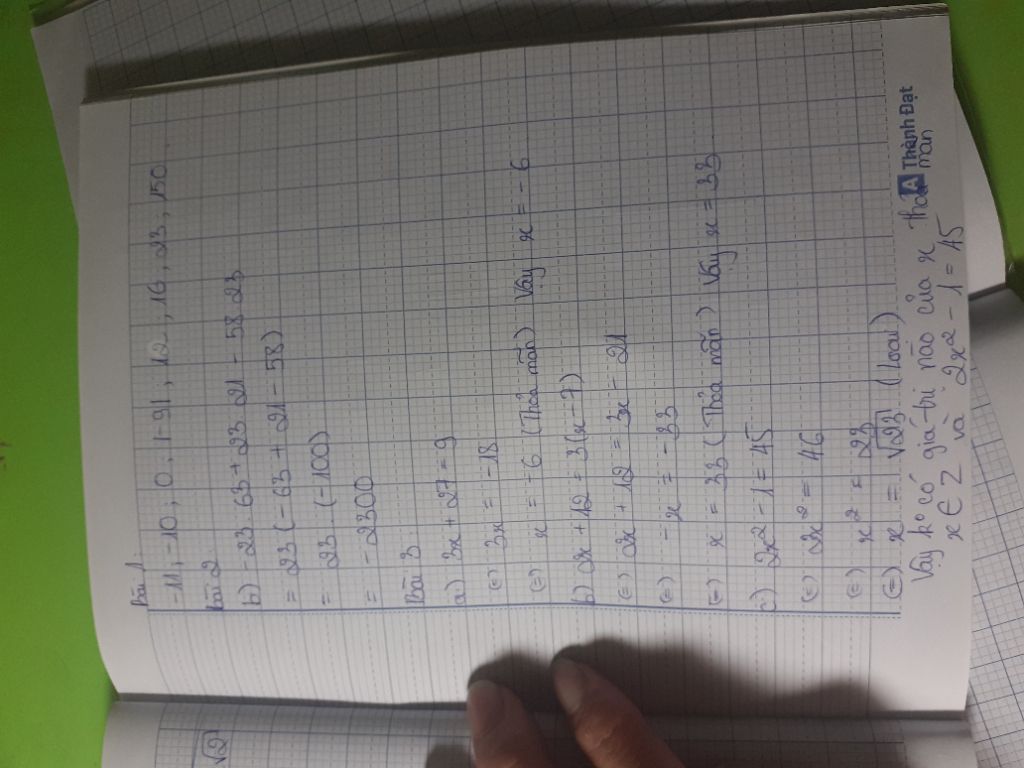 Bài 1
-11, -10, 0, |-9|, 12, 16, 23, 150
Bài 2
b) -23. 63 + 23. 21 - 58.23
= 23 (-63 + 21 - 58)
= 23. (-100)
= -2300
Bài 3
a) 3x + 27 = 9
(=) 3x = -18
(=) x = -6 (Thỏa mãn) Vậy x = -6
b) 2x + 12 = 3(x - 7)
(=) 2x + 12 = 3x - 21
(=) -x = -33
(=) x = 33 (Thỏa mãn) Vậy x = 33
c) 2x² - 1 = 45
(=) 2x² = 46
(=) x² = 23
(=) x = √23 (loại)
Vậy k° có giá trị nào của x thỏa mãn
x ∈ Z và 2x² - 1 = 45
Thành Đạt
√2